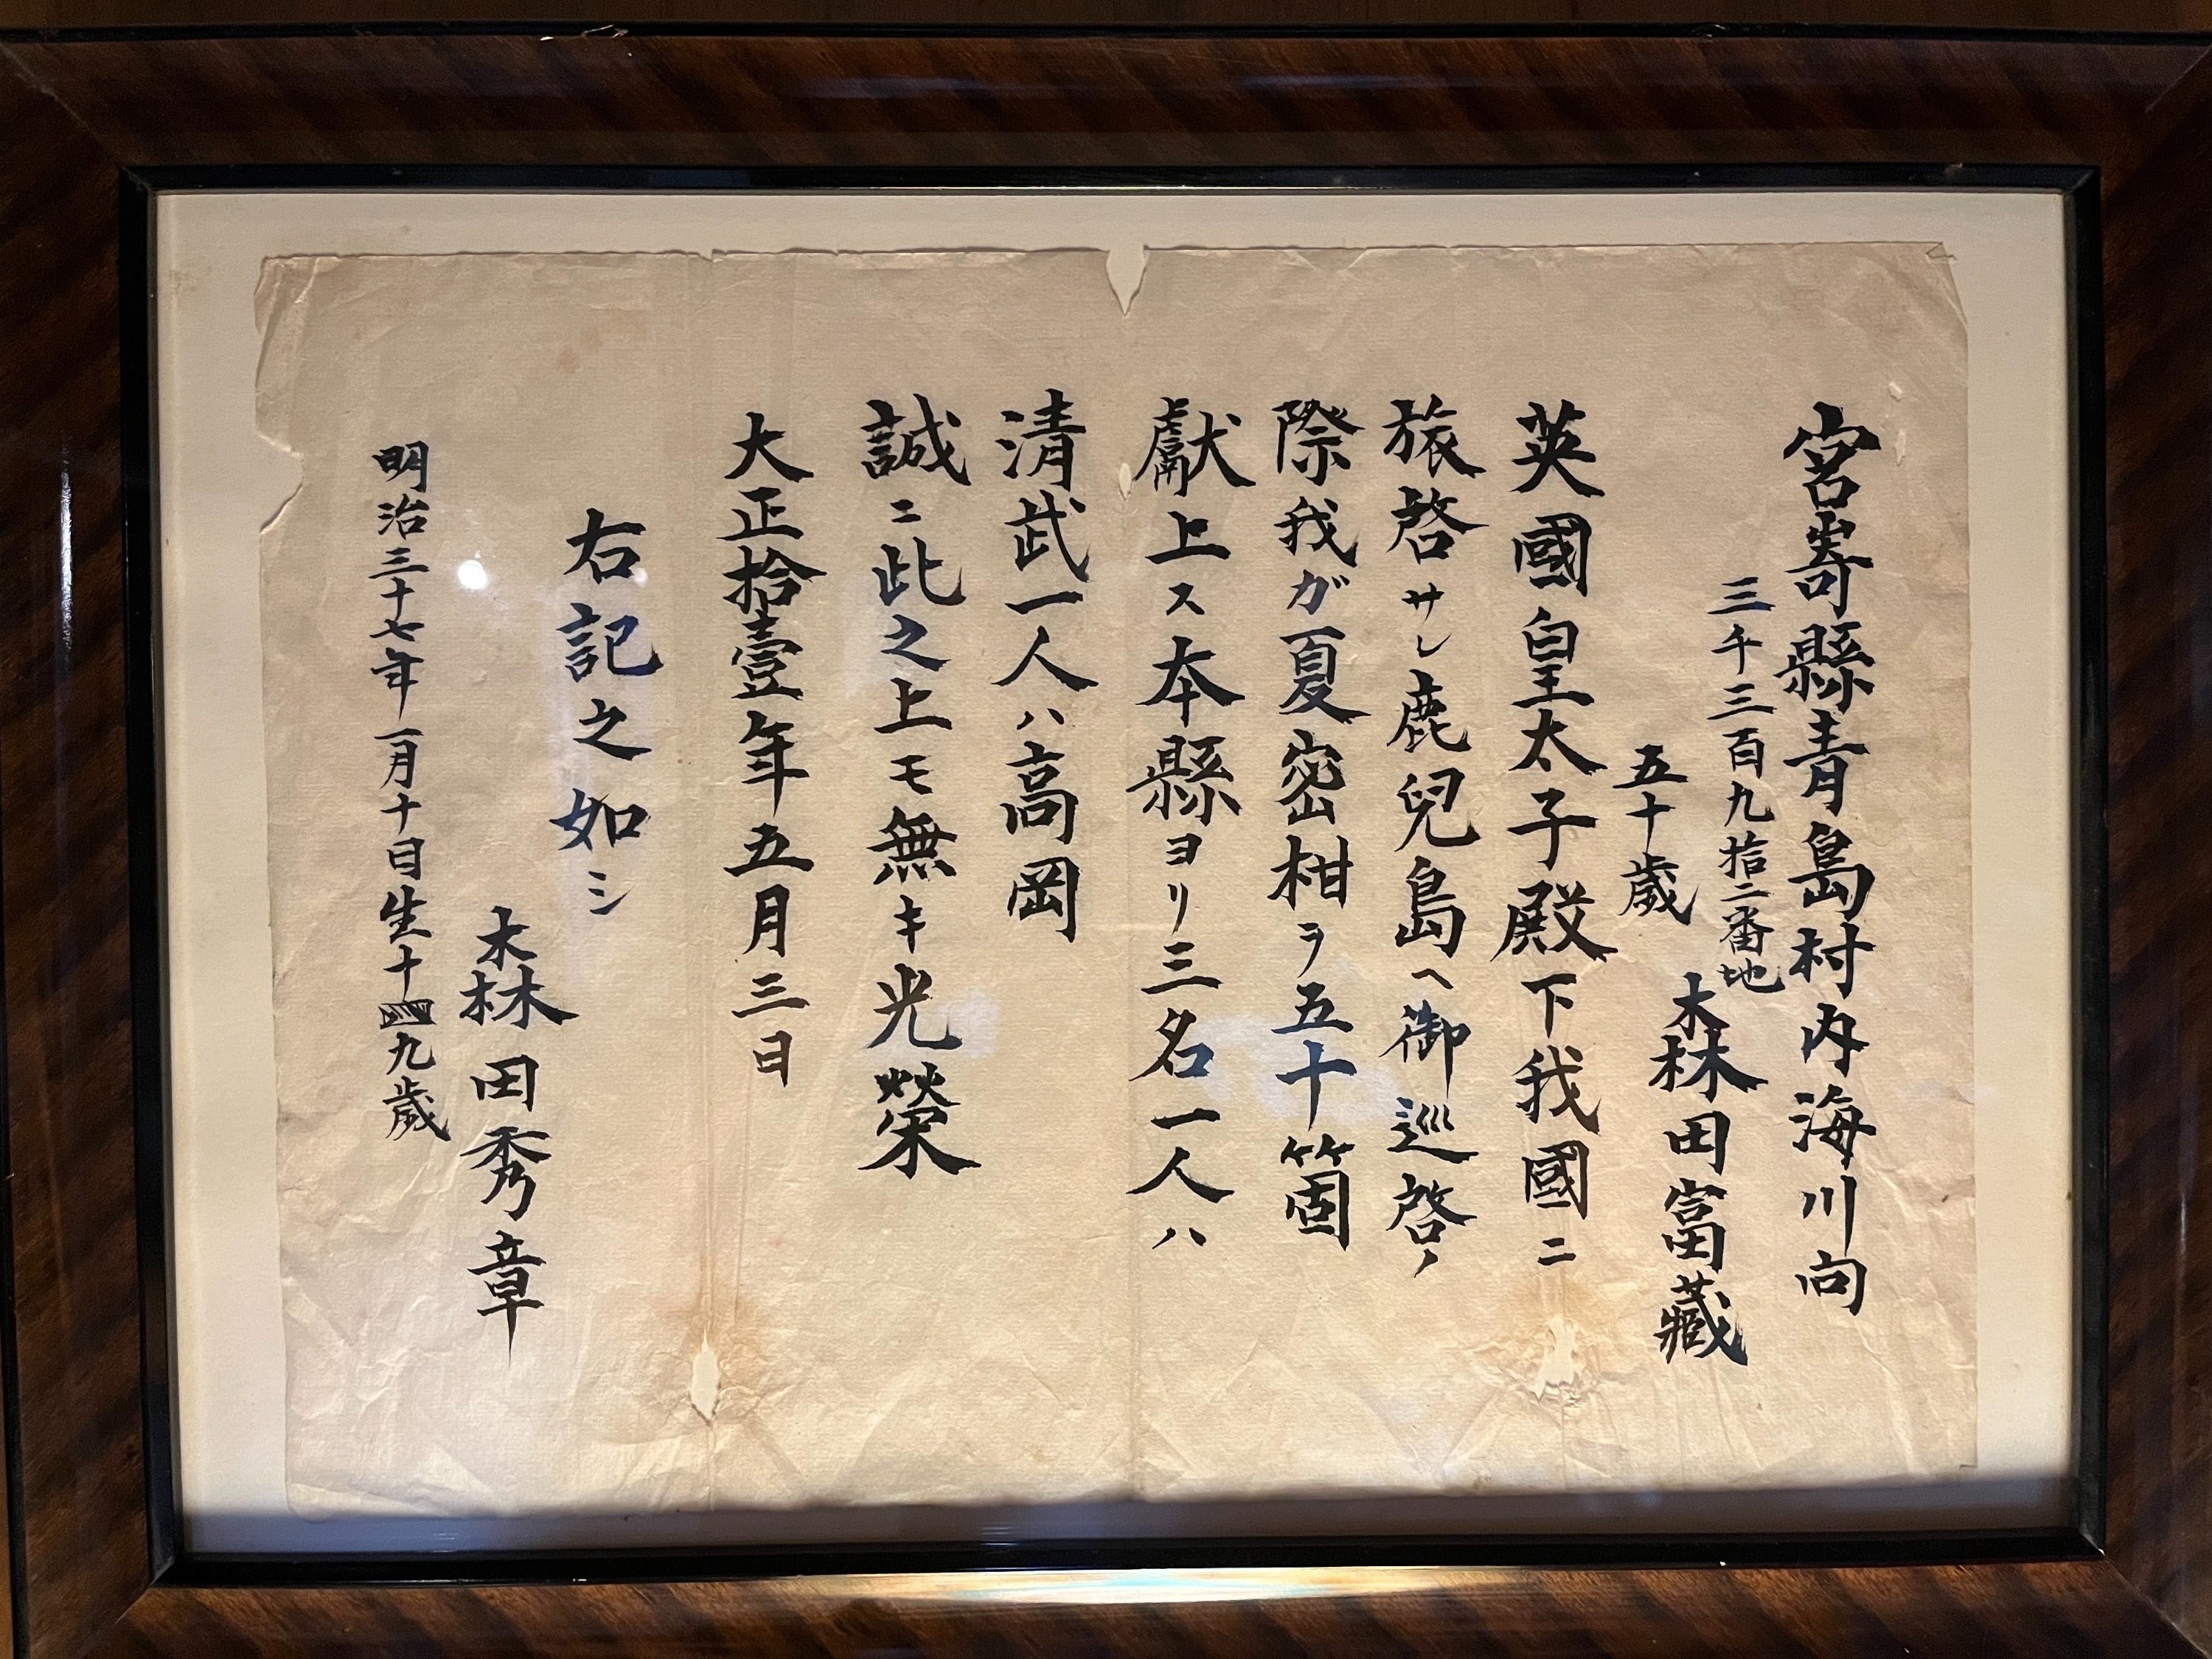 宮嵜縣青島村内海川向
三千三百九拾二番地
五十歳
森田富藏
英國皇太子殿下我國ニ
旅啓サレ鹿児島ヘ御巡啓ノ
際我ガ夏密柑ヲ五十箇
獻上ス本縣ヨリ三名一人ハ
清武一人ハ高岡
誠ニ此之上モ無キ光榮
大正拾壹年五月三日
右記之如シ
森田秀章
明治三十七年一月十日生十九歳